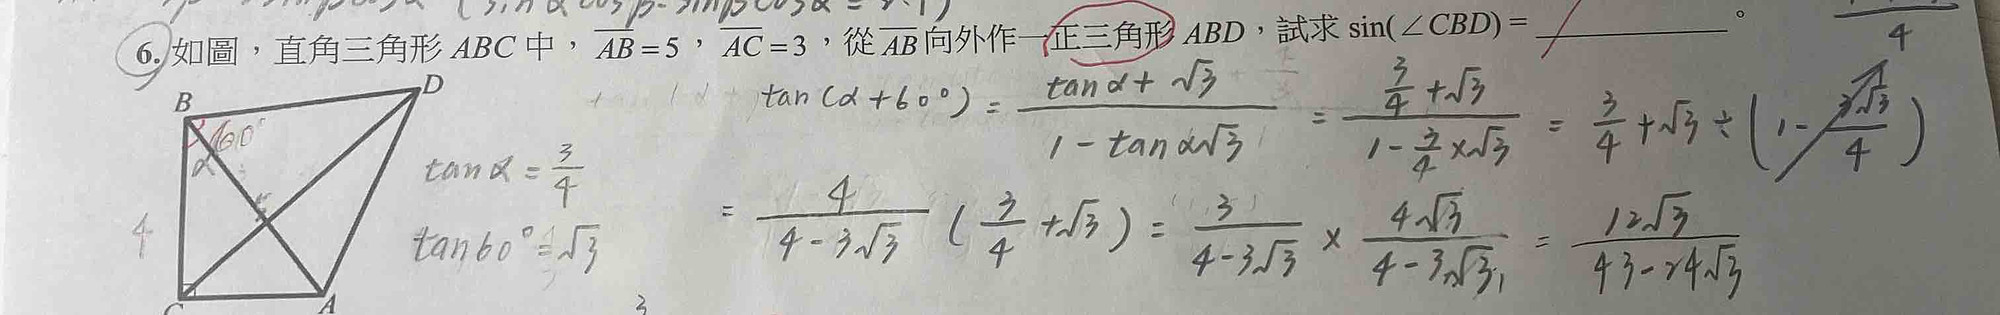 6. 如圖，直角三角形 ABC 中，AB=5，AC=3，從 AB 向外作一正三角形 ABD，試求 sin(∠CBD)= ________。
4
B
D
60°
α
4
C
A
tan α = 3/4
tan60° = √3
tan(α+60°) = (tanα + √3)/(1 - tanα√3) = (3/4 + √3)/(1 - 3/4 × √3) = 3/4 + √3 ÷ (1 - 3√3/4)
= 4/(4-3√3) (3/4 + √3) = 3/(4-3√3) × 4√3/(4-3√3) = 12√3/(43-24√3)
3